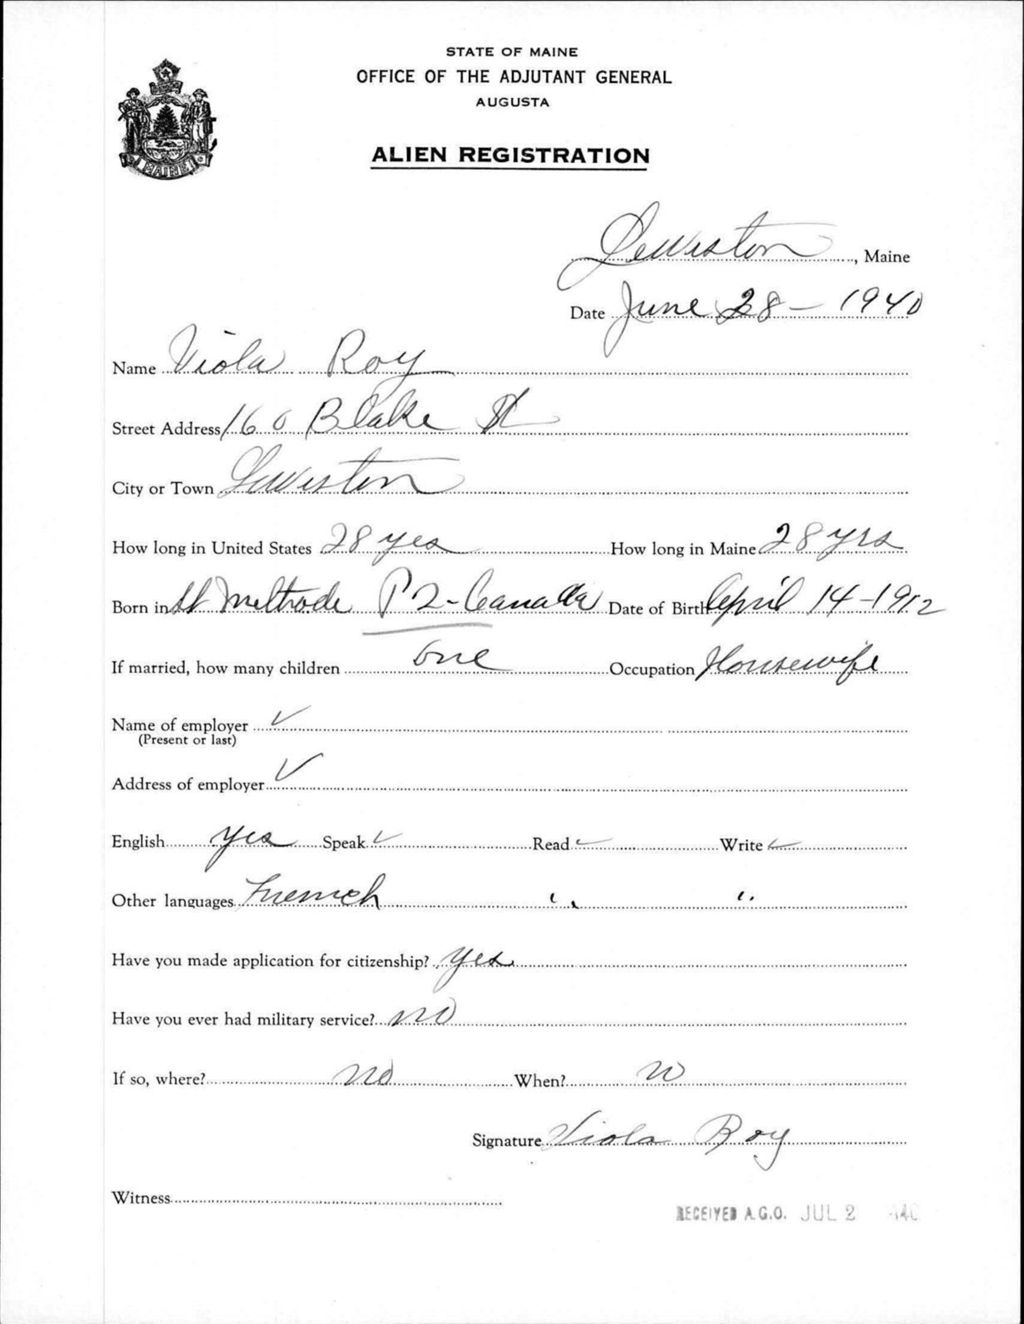 STATE OF MAINE
OFFICE OF THE ADJUTANT GENERAL
AUGUSTA
ALIEN REGISTRATION
MAINE
Lewiston, Maine
Date June 28 - 1940
Name Viola Roy
Street Address 160 Blake St
City or Town Lewiston
How long in United States 28 yes How long in Maine 28 yrs
Born in St Methode P2 - Canada Date of Birth April 14 - 1912
If married, how many children one Occupation Housewife
Name of employer ✓
(Present or last)
Address of employer ✓
English yes Speak ✓ Read ✓ Write ✓
Other languages French " "
Have you made application for citizenship? yes
Have you ever had military service? no
If so, where? no When? no
Signature Viola Roy
Witness
RECEIVED A.G.O. JUL 2 1940